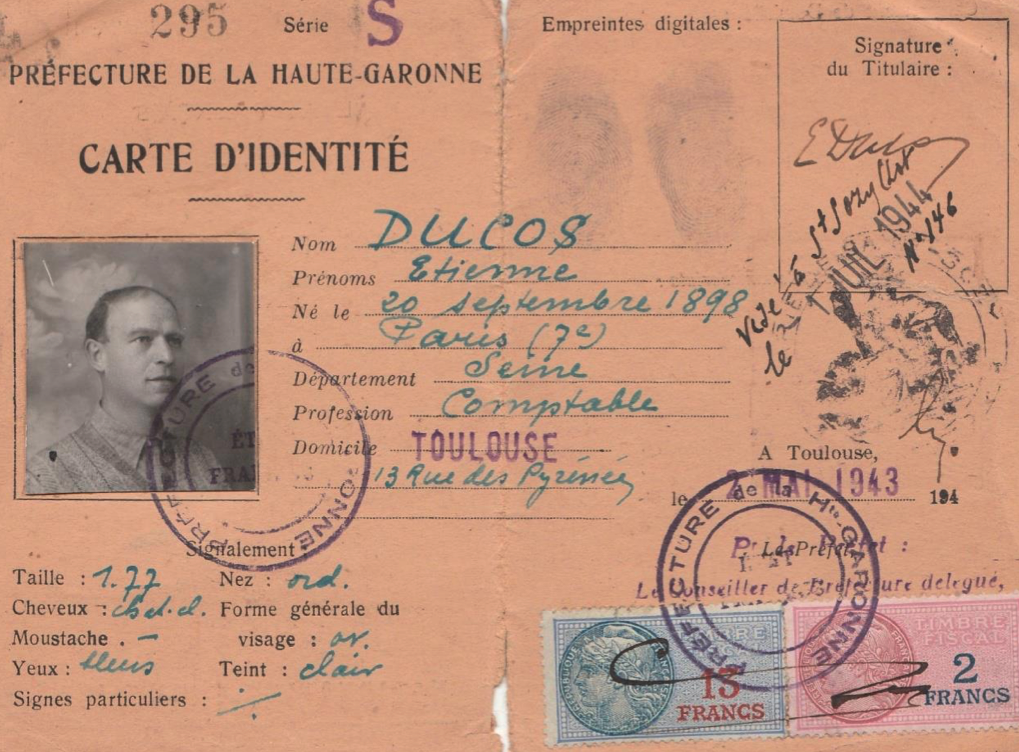 295 Série S
PRÉFECTURE DE LA HAUTE-GARONNE
CARTE D'IDENTITÉ
Nom DUCOS
Prénoms Etienne
Né le 20 septembre 1898
à Paris (7e)
Département Seine
Profession Comptable
Domicile TOULOUSE
13 Rue des Pyrénées
Signalement :
Taille : 1.77 Nez : ord.
Cheveux : ch.t.cl. Forme générale du
Moustache . - visage : ov.
Yeux : bleus Teint : clair
Signes particuliers :
Empreintes digitales :
Signature
du Titulaire :
E Ducos
Visé à St Sozy Lot
le JUIL 1944
N° 146
A Toulouse,
le 2 MAI 1943 194
Le Préfet,
Pr le Préfet :
Le Conseiller de Préfecture délégué,
PRÉFECTURE de la Hte-GARONNE
PRÉFECTURE de GARONNE
ÉT
FRAN
TIMBRE
FISCAL
13
FRANCS
2
FRANCS